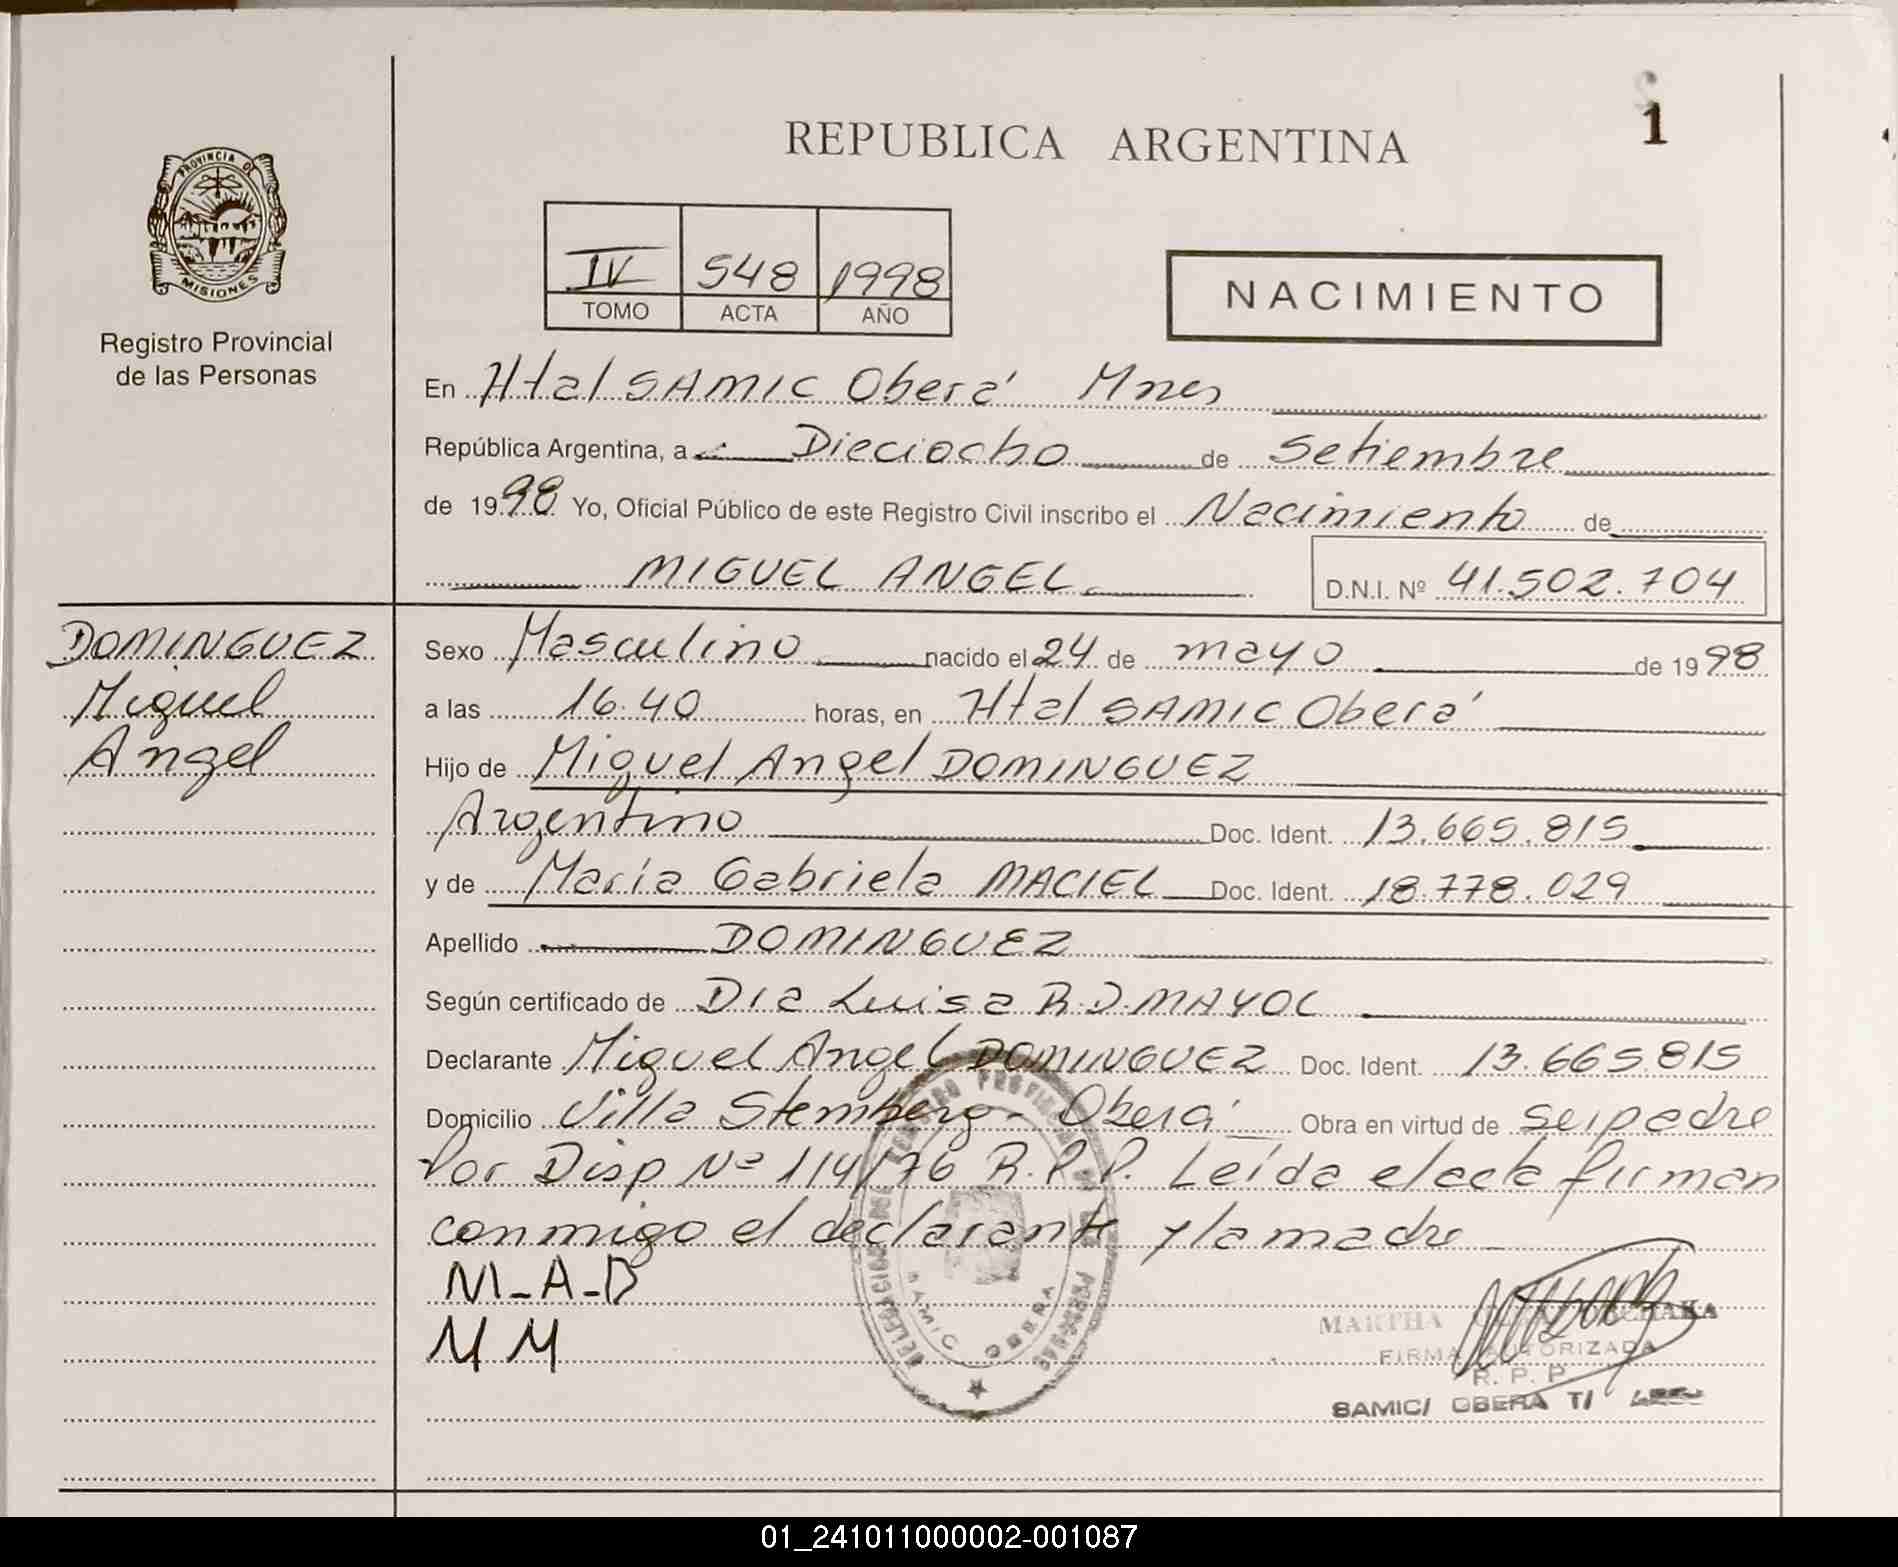 1
REPUBLICA ARGENTINA
PROVINCIA DE
MISIONES
Registro Provincial
de las Personas
IV 548 1998
TOMO ACTA AÑO
NACIMIENTO
En Htal SAMIC Oberá Mnes
República Argentina, a Dieciocho de Setiembre
de 1998 Yo, Oficial Público de este Registro Civil inscribo el Nacimiento de
MIGUEL ANGEL
D.N.I. Nº 41.502.704
DOMINGUEZ
Miguel
Angel
Sexo Masculino nacido el 24 de mayo de 1998
a las 16.40 horas, en Htal SAMIC Oberá
Hijo de Miguel Angel DOMINGUEZ
Argentino Doc. Ident. 13.665.815
y de María Gabriela MACIEL Doc. Ident. 18.778.029
Apellido DOMINGUEZ
Según certificado de Dra Luisa R.D. MAYOL
Declarante Miguel Angel DOMINGUEZ Doc. Ident. 13.665.815
Domicilio Villa Stemberg - Oberá Obra en virtud de ser padre
Por Disp Nº 114/76 R.P.P. Leída el acta firman
conmigo el declarante y la madre
M-A-D
M M
DELEGACION DEL REGISTRO PROVINCIAL DE LAS PERSONAS
SAMIC OBERA
MARTHA
FIRMA AUTORIZADA
R. P. P.
SAMIC/ OBERA T/
01_241011000002-001087